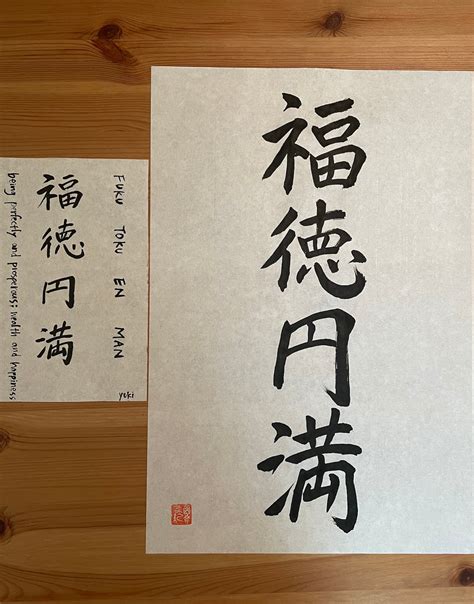 福徳円満
FUKU TOKU EN MAN
福徳円満
being perfectly and prosperous; wealth and happiness
yuki